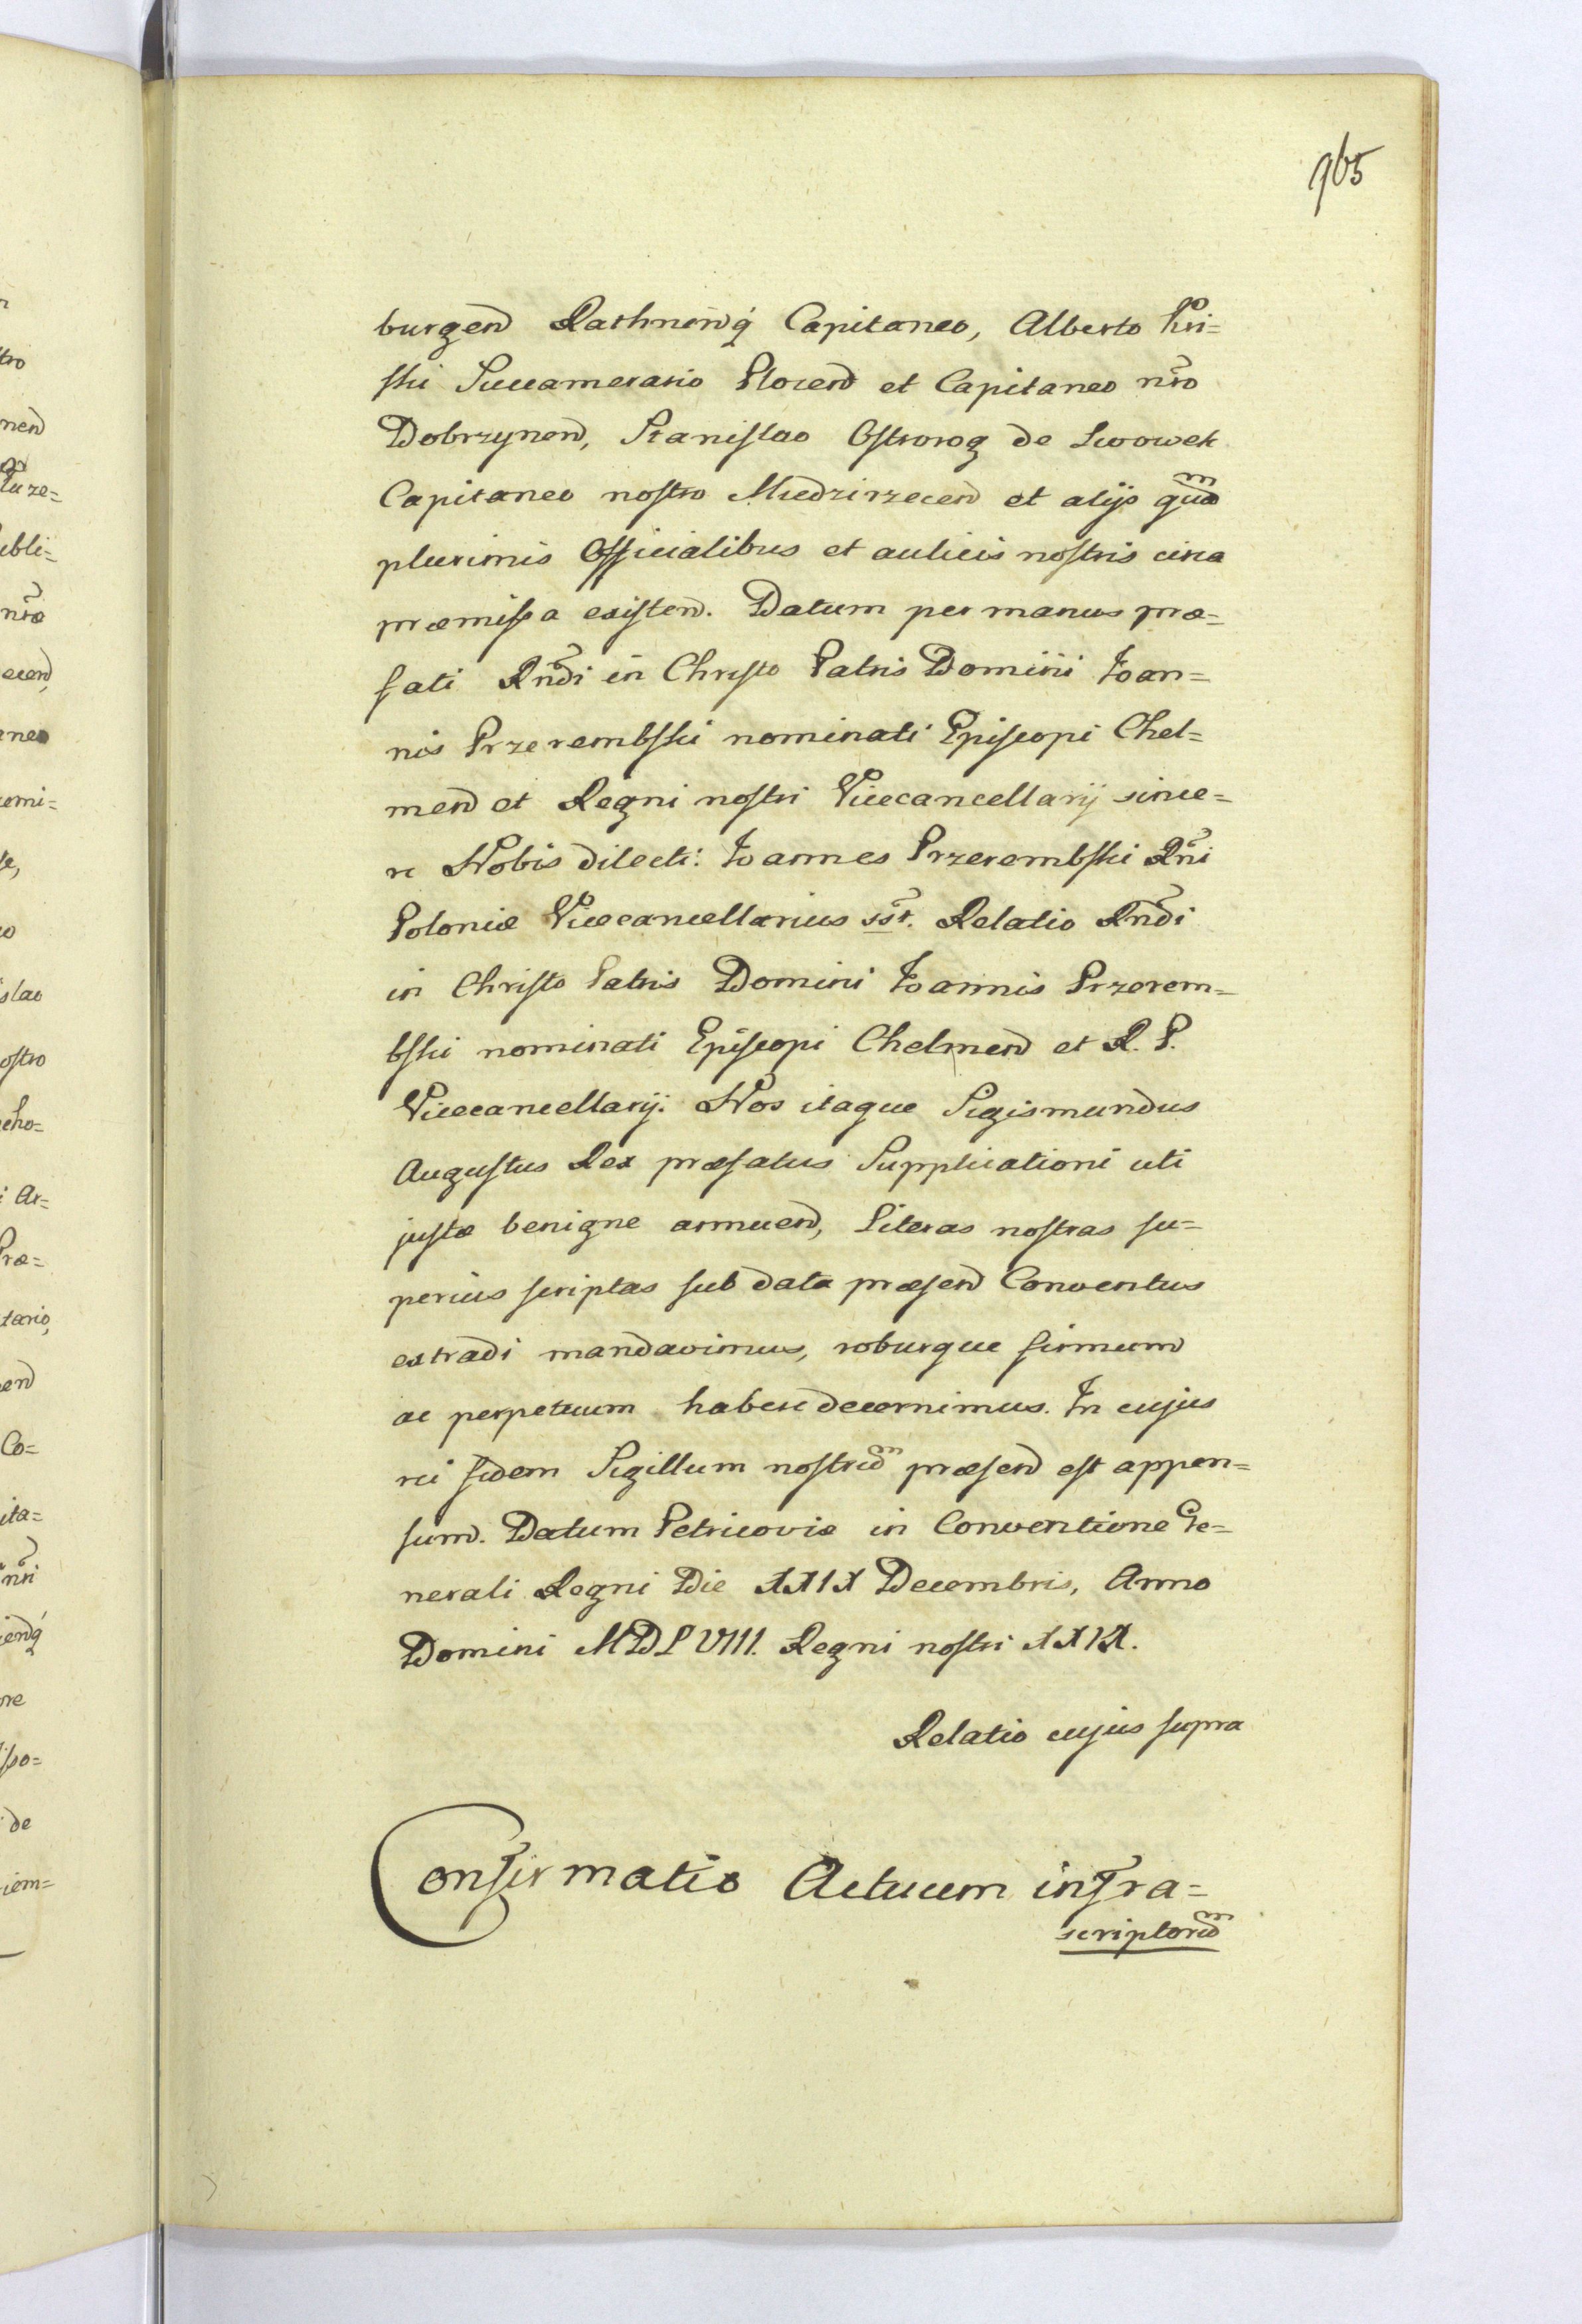 965
burgen Rathnenq́ Capitaneo, Alberto Kri=
ski Succamerario Plocen et Capitaneo nr̃o
Dobrzynen, Stanislao Ostrorog de Lwowek
Capitaneo nostro Miedzirzecen et alijs quam
plurimis Officialibus et aulicis nostris circa
præmissa existen. Datum per manus præ=
fati Rñdi in Christo Patris Domini Joan=
nis Przerembski nominati Episcopi Chel=
men et Regni nostri Vicecancellarij since=
re Nobis dilecti. Joannes Przerembski Rñi
Poloniæ Vicecancellarius sst. Relatio Rñdi
in Christo Patris Domini Joannis Przerem=
bski nominati Episcopi Chelmen et R. P.
Vicecancellarij. Nos itaque Sigismundus
Augustus Rex præfatus Supplicationi uti
justæ benigne annuen, Literas nostras su=
perius scriptas sub data præsen Conventus
extradi mandavimus, roburque firmum
ac perpetuum habere decernimus. In cujus
rei fidem Sigillum nostrum præsen est appen=
sum. Datum Petricoviæ in Conventione Ge=
nerali Regni Die XXIX Decembris, Anno
Domini MDLVIII. Regni nostri XXIX.
Relatio cujus supra
Confirmatio Actuum infra=
scriptorum